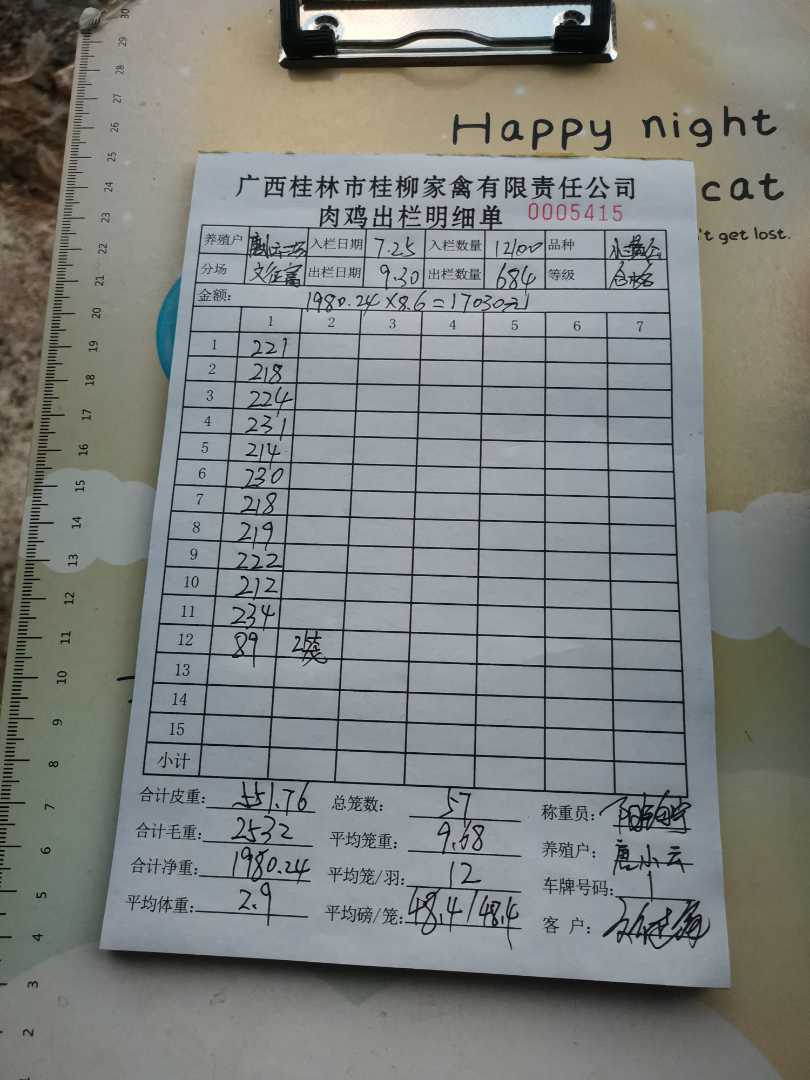 Happy night
cat
't get lost.
广西桂林市桂柳家禽有限责任公司
肉鸡出栏明细单 0005415
养殖户 入栏日期 7.25 入栏数量 12100 品种
分场 文征富 出栏日期 9.30 出栏数量 684 等级 合格
金额: 1980.24×8.6=17030元
1 2 3 4 5 6 7
1 221
2 218
3 224
4 231
5 214
6 230
7 218
8 219
9 222
10 212
11 234
12 89 2袋
13
14
15
小计
合计皮重: 551.76 总笼数: 57 称重员:
合计毛重: 2532 平均笼重: 9.68 养殖户: 唐小云
合计净重: 1980.24 平均笼/羽: 12 车牌号码: 1
平均体重: 2.9 平均磅/笼: 48.4/48.4 客 户:
30
29
28
27
26
25
24
23
22
21
20
19
18
17
16
15
14
13
12
11
10
9
8
7
6
5
4
3
2